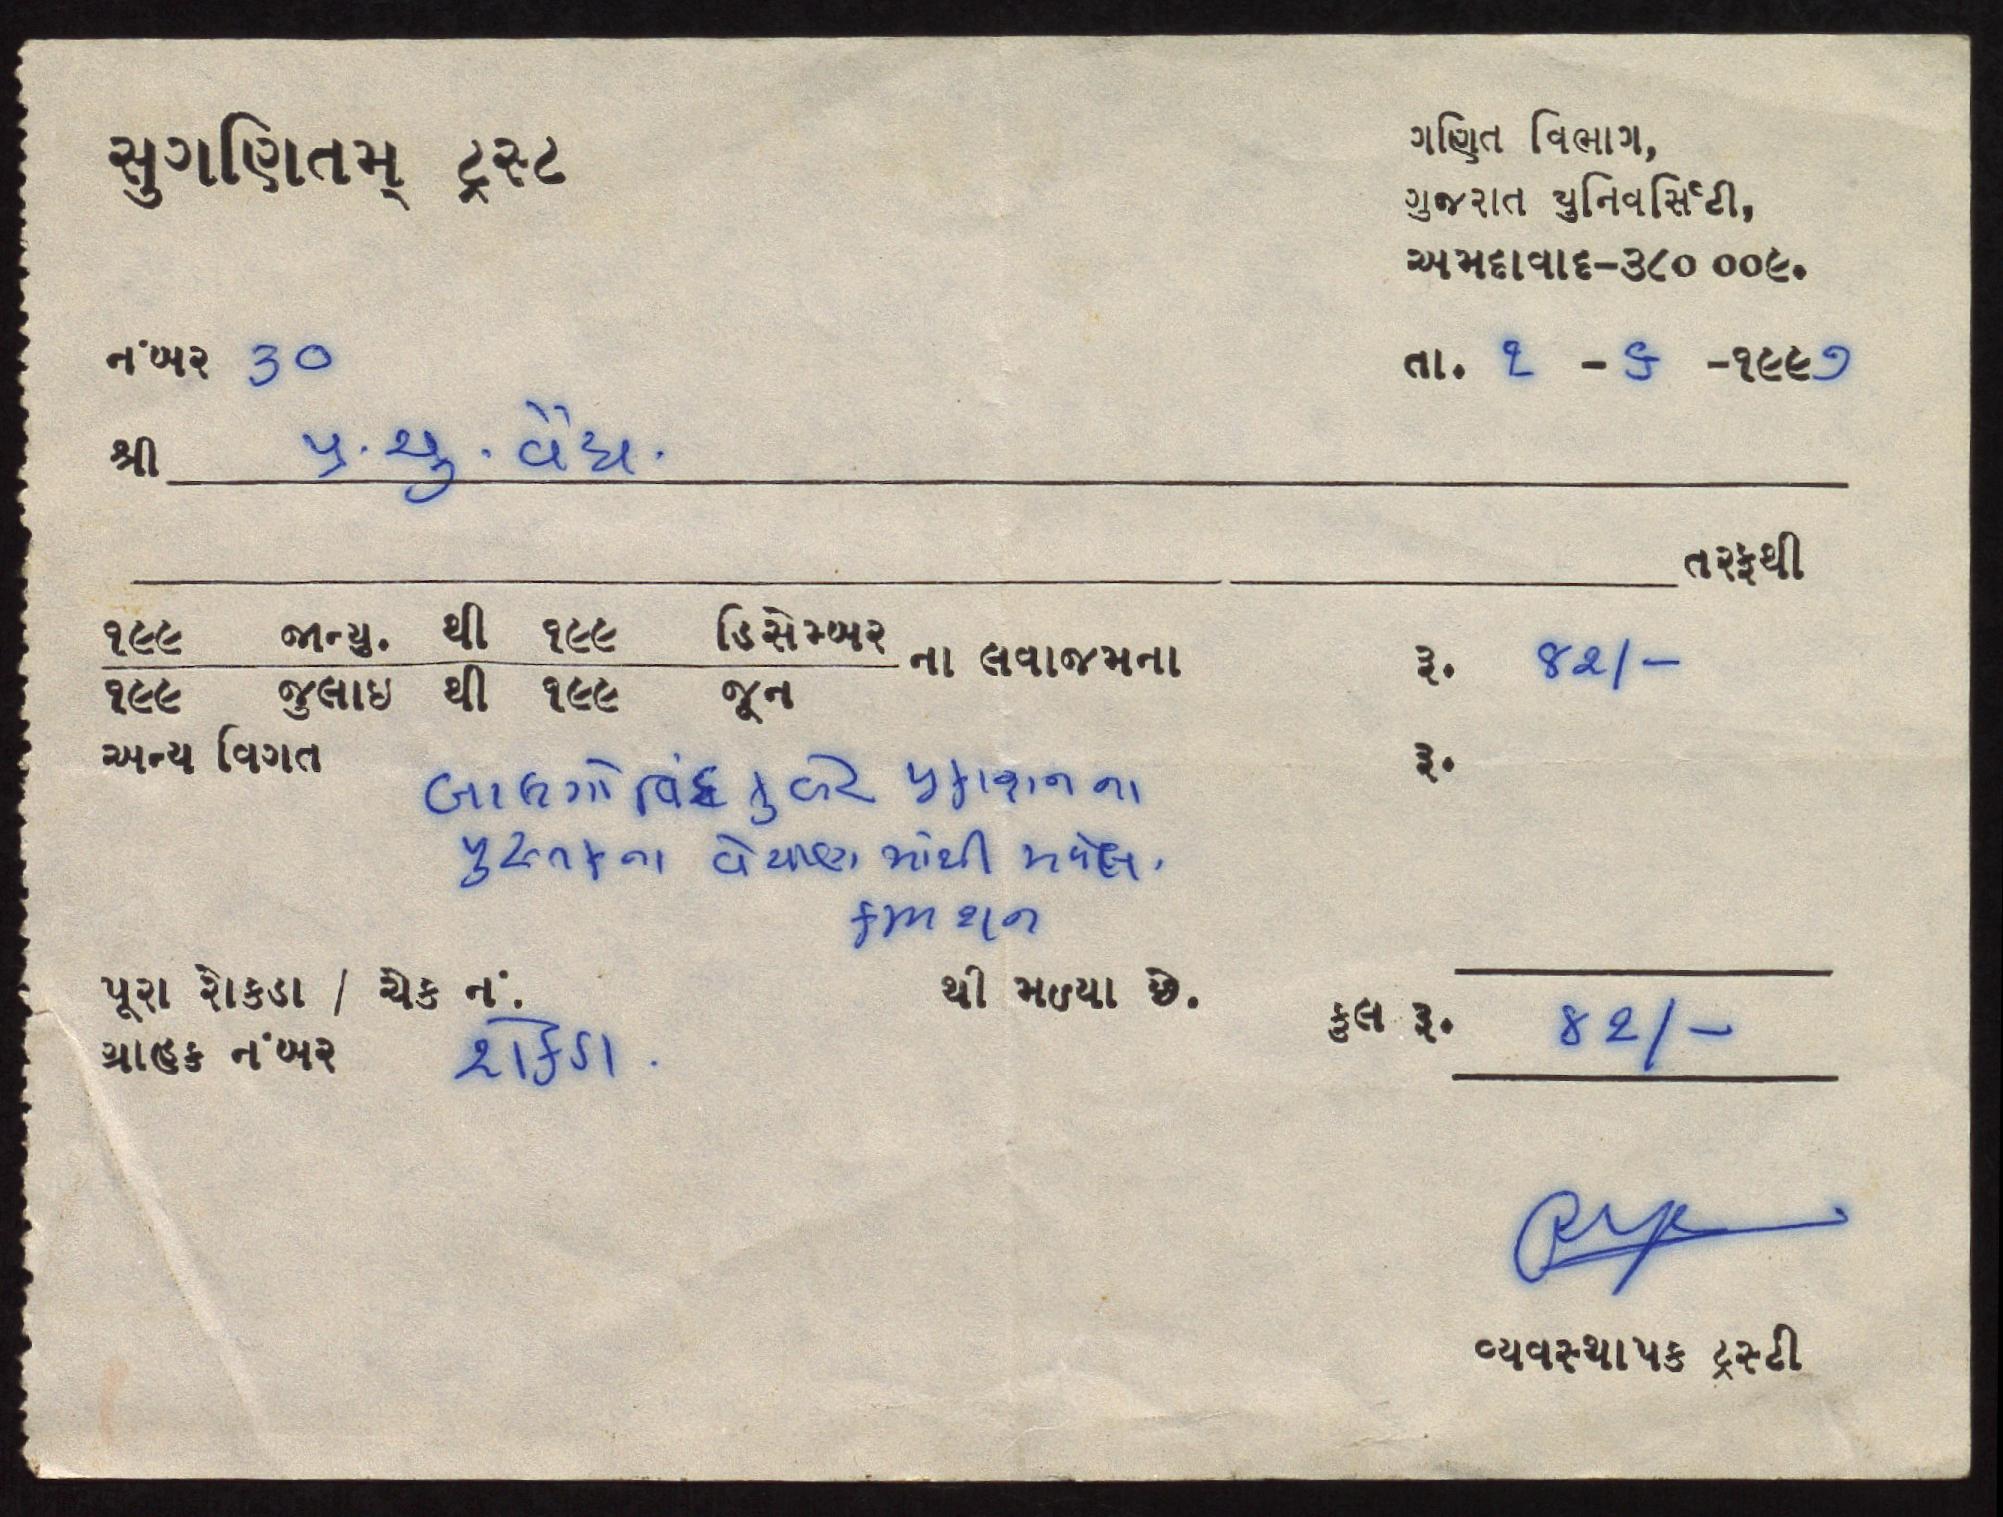 સુગણિતમ્ ટ્રસ્ટ
ગણિત વિભાગ,
ગુજરાત યુનિવર્સિટી,
અમદાવાદ-૩૮૦ ૦૦૯.
નંબર ૩૦
તા. ૨ - ૬ -૧૯૯૭
શ્રી પ્ર. ચુ. વૈદ્ય.
તરફથી
૧૯૯ જાન્યુ. થી ૧૯૯ ડિસેમ્બર
ના લવાજમના રૂ. ૪૨/-
૧૯૯ જુલાઇ થી ૧૯૯ જૂન
અન્ય વિગત રૂ.
બાલગોવિંદ કુબેર પ્રકાશનના
પુસ્તકના વેચાણમાંથી મળેલ.
કમિશન
પૂરા રોકડા / ચેક નં. થી મળ્યા છે. કુલ રૂ. ૪૨/-
ગ્રાહક નંબર રોકડા.
વ્યવસ્થાપક ટ્રસ્ટી